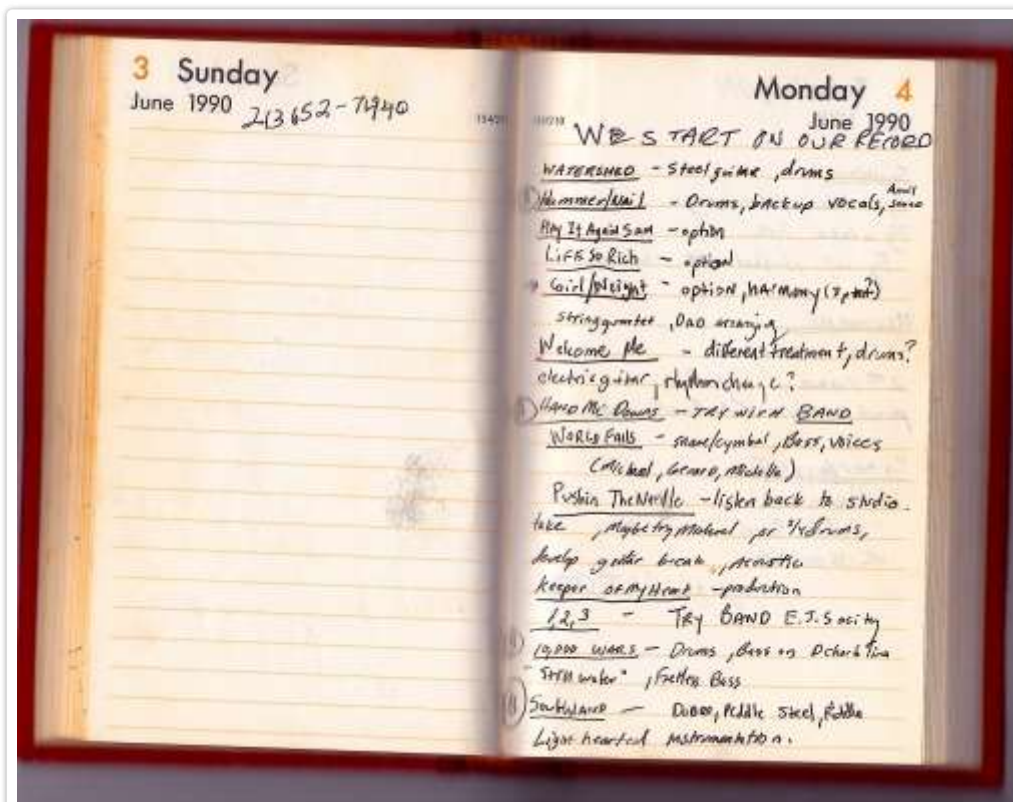 3 Sunday
June 1990 213652-7440
Monday 4
June 1990
WE START ON OUR RECORD
WATERSHED - Steel guitar, drums
Hammer/Nail - Drums, backup vocals, Anvil sound
Play It Again Sam - option
LIFE SO Rich - option
Girl/Weight - option, harmony (
string quartet, DAD arranging
Welcome Me - different treatment, drums?
electric guitar, rhythm change?
HAND Me Downs - TRY WITH BAND
WORLD Falls - snare/cymbal, Bass, voices
(Michael, Gerard, Michelle)
Pushin The Needle - listen back to studio
take, Maybe try Material or drums,
develop guitar break, Acoustic
Keeper of My Heart - production
1,2,3 - TRY BAND E.J. Society
10,000 WARS - Drums, Bass on D chord Tina
"Still water", Fretless Bass
SOUTHLAND - DOBRO, Peddle Steel, Fiddle
Light hearted instrumentation.